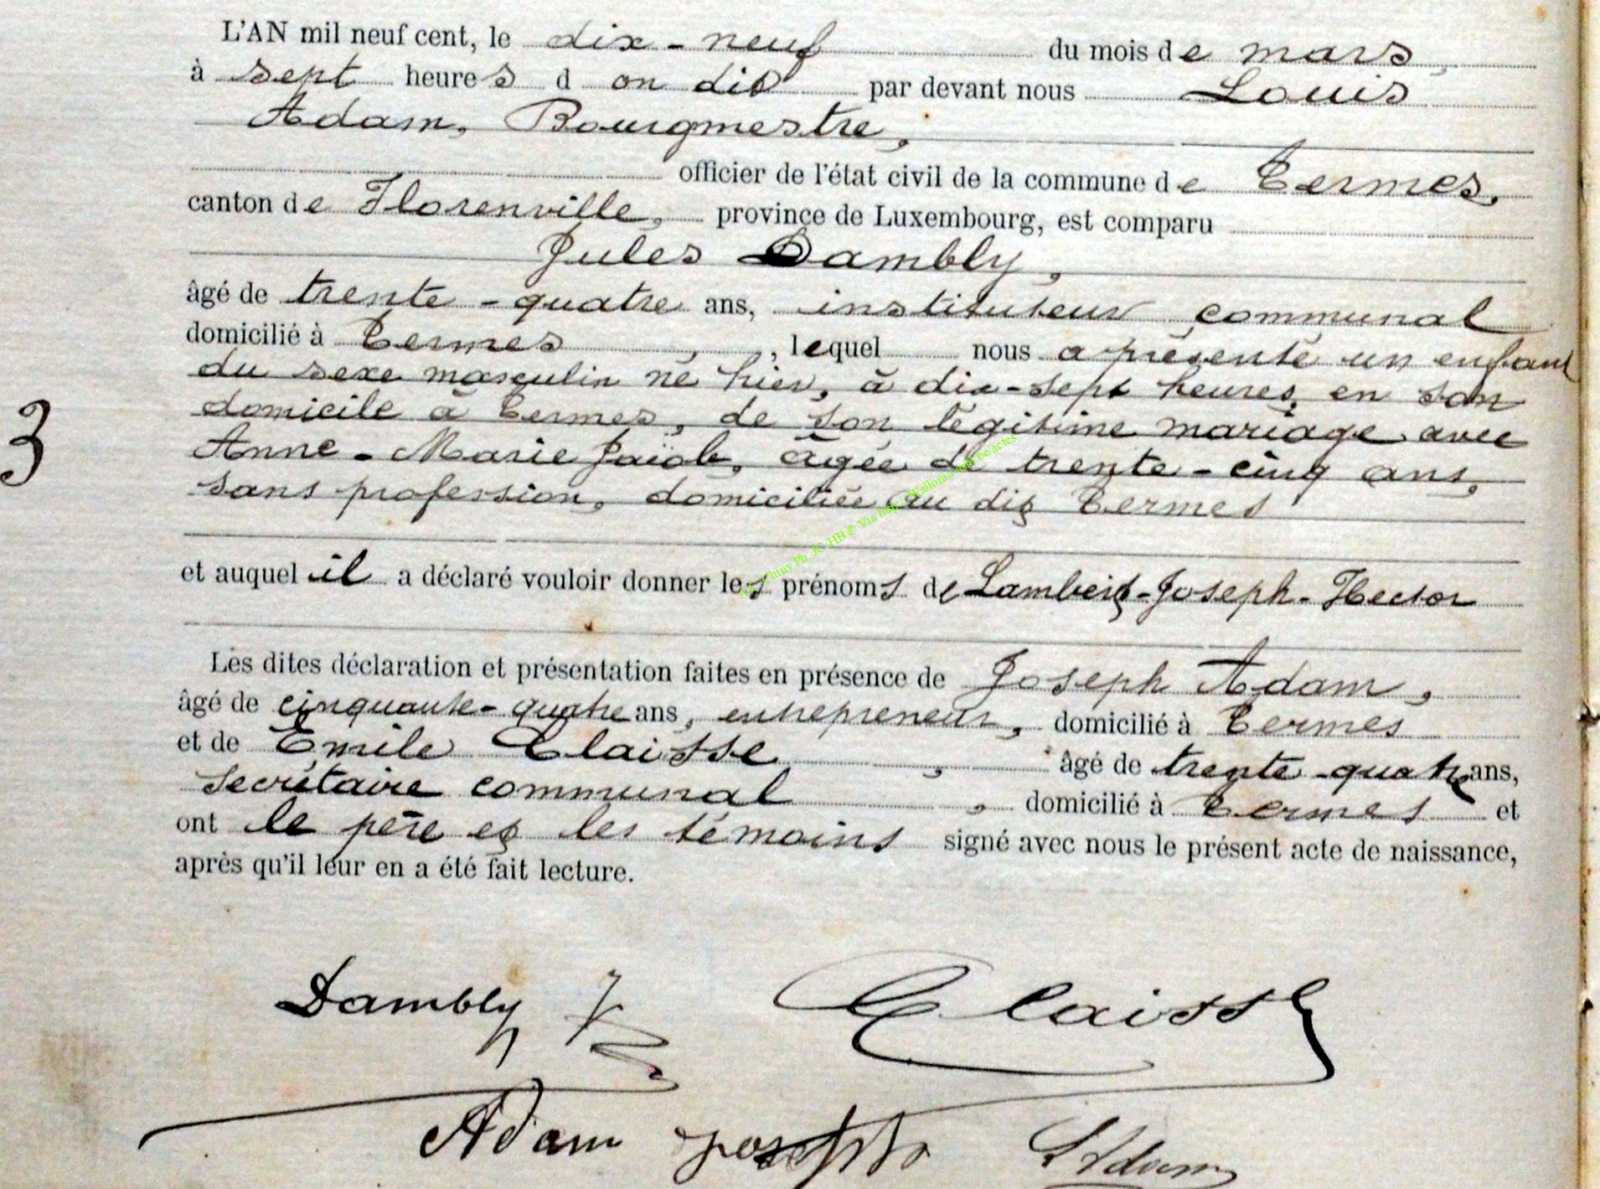 L'AN mil neuf cent, le dix-neuf du mois de mars,
à sept heures d on dis par devant nous Louis
Adam, Bourgmestre,
officier de l'état civil de la commune de Termes,
canton de Florenville, province de Luxembourg, est comparu
Jules Dambly,
âgé de trente-quatre ans, instituteur communal
domicilié à Termes, lequel nous a présenté un enfant
du sexe masculin né hier, à dix-sept heures, en son
domicile à Termes, de son légitime mariage avec
Anne-Marie Jacob, âgée de trente-cinq ans,
3
sans profession, domiciliée au dit Termes
et auquel il a déclaré vouloir donner les prénoms de Lambert-Joseph-Hector
Les dites déclaration et présentation faites en présence de Joseph Adam,
âgé de cinquante-quatre ans, entrepreneur, domicilié à Termes
et de Emile Claisse, âgé de trente-quatre ans,
secrétaire communal, domicilié à Termes et
ont le père et les témoins signé avec nous le présent acte de naissance,
après qu'il leur en a été fait lecture.
Dambly J Claisse
Adam Joseph L Adam